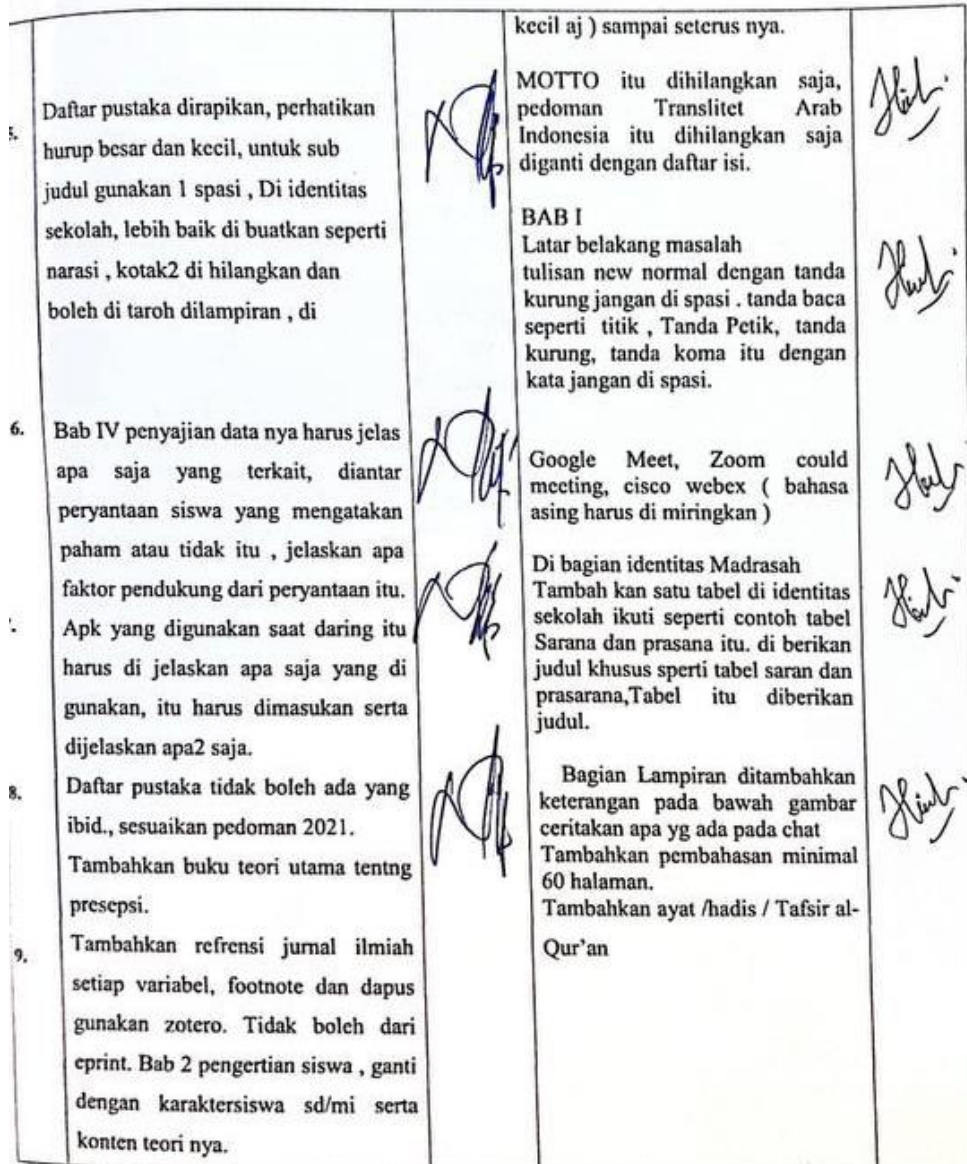 Daftar pustaka dirapikan, perhatikan
hurup besar dan kecil, untuk sub
judul gunakan 1 spasi , Di identitas
sekolah, lebih baik di buatkan seperti
narasi , kotak2 di hilangkan dan
boleh di taroh dilampiran , di
6.
Bab IV penyajian data nya harus jelas
apa saja yang terkait, diantar
peryantaan siswa yang mengatakan
paham atau tidak itu , jelaskan apa
faktor pendukung dari peryantaan itu.
Apk yang digunakan saat daring itu
harus di jelaskan apa saja yang di
gunakan, itu harus dimasukan serta
dijelaskan apa2 saja.
8.
Daftar pustaka tidak boleh ada yang
ibid., sesuaikan pedoman 2021.
Tambahkan buku teori utama tentng
presepsi.
9.
Tambahkan refrensi jurnal ilmiah
setiap variabel, footnote dan dapus
gunakan zotero. Tidak boleh dari
eprint. Bab 2 pengertian siswa , ganti
dengan karaktersiswa sd/mi serta
konten teori nya.
kecil aj ) sampai seterus nya.
MOTTO itu dihilangkan saja,
pedoman Translitet Arab
Indonesia itu dihilangkan saja
diganti dengan daftar isi.
BAB I
Latar belakang masalah
tulisan new normal dengan tanda
kurung jangan di spasi . tanda baca
seperti titik , Tanda Petik, tanda
kurung, tanda koma itu dengan
kata jangan di spasi.
Google Meet, Zoom could
meeting, cisco webex ( bahasa
asing harus di miringkan )
Di bagian identitas Madrasah
Tambah kan satu tabel di identitas
sekolah ikuti seperti contoh tabel
Sarana dan prasana itu. di berikan
judul khusus sperti tabel saran dan
prasarana,Tabel itu diberikan
judul.
Bagian Lampiran ditambahkan
keterangan pada bawah gambar
ceritakan apa yg ada pada chat
Tambahkan pembahasan minimal
60 halaman.
Tambahkan ayat /hadis / Tafsir al-
Qur'an